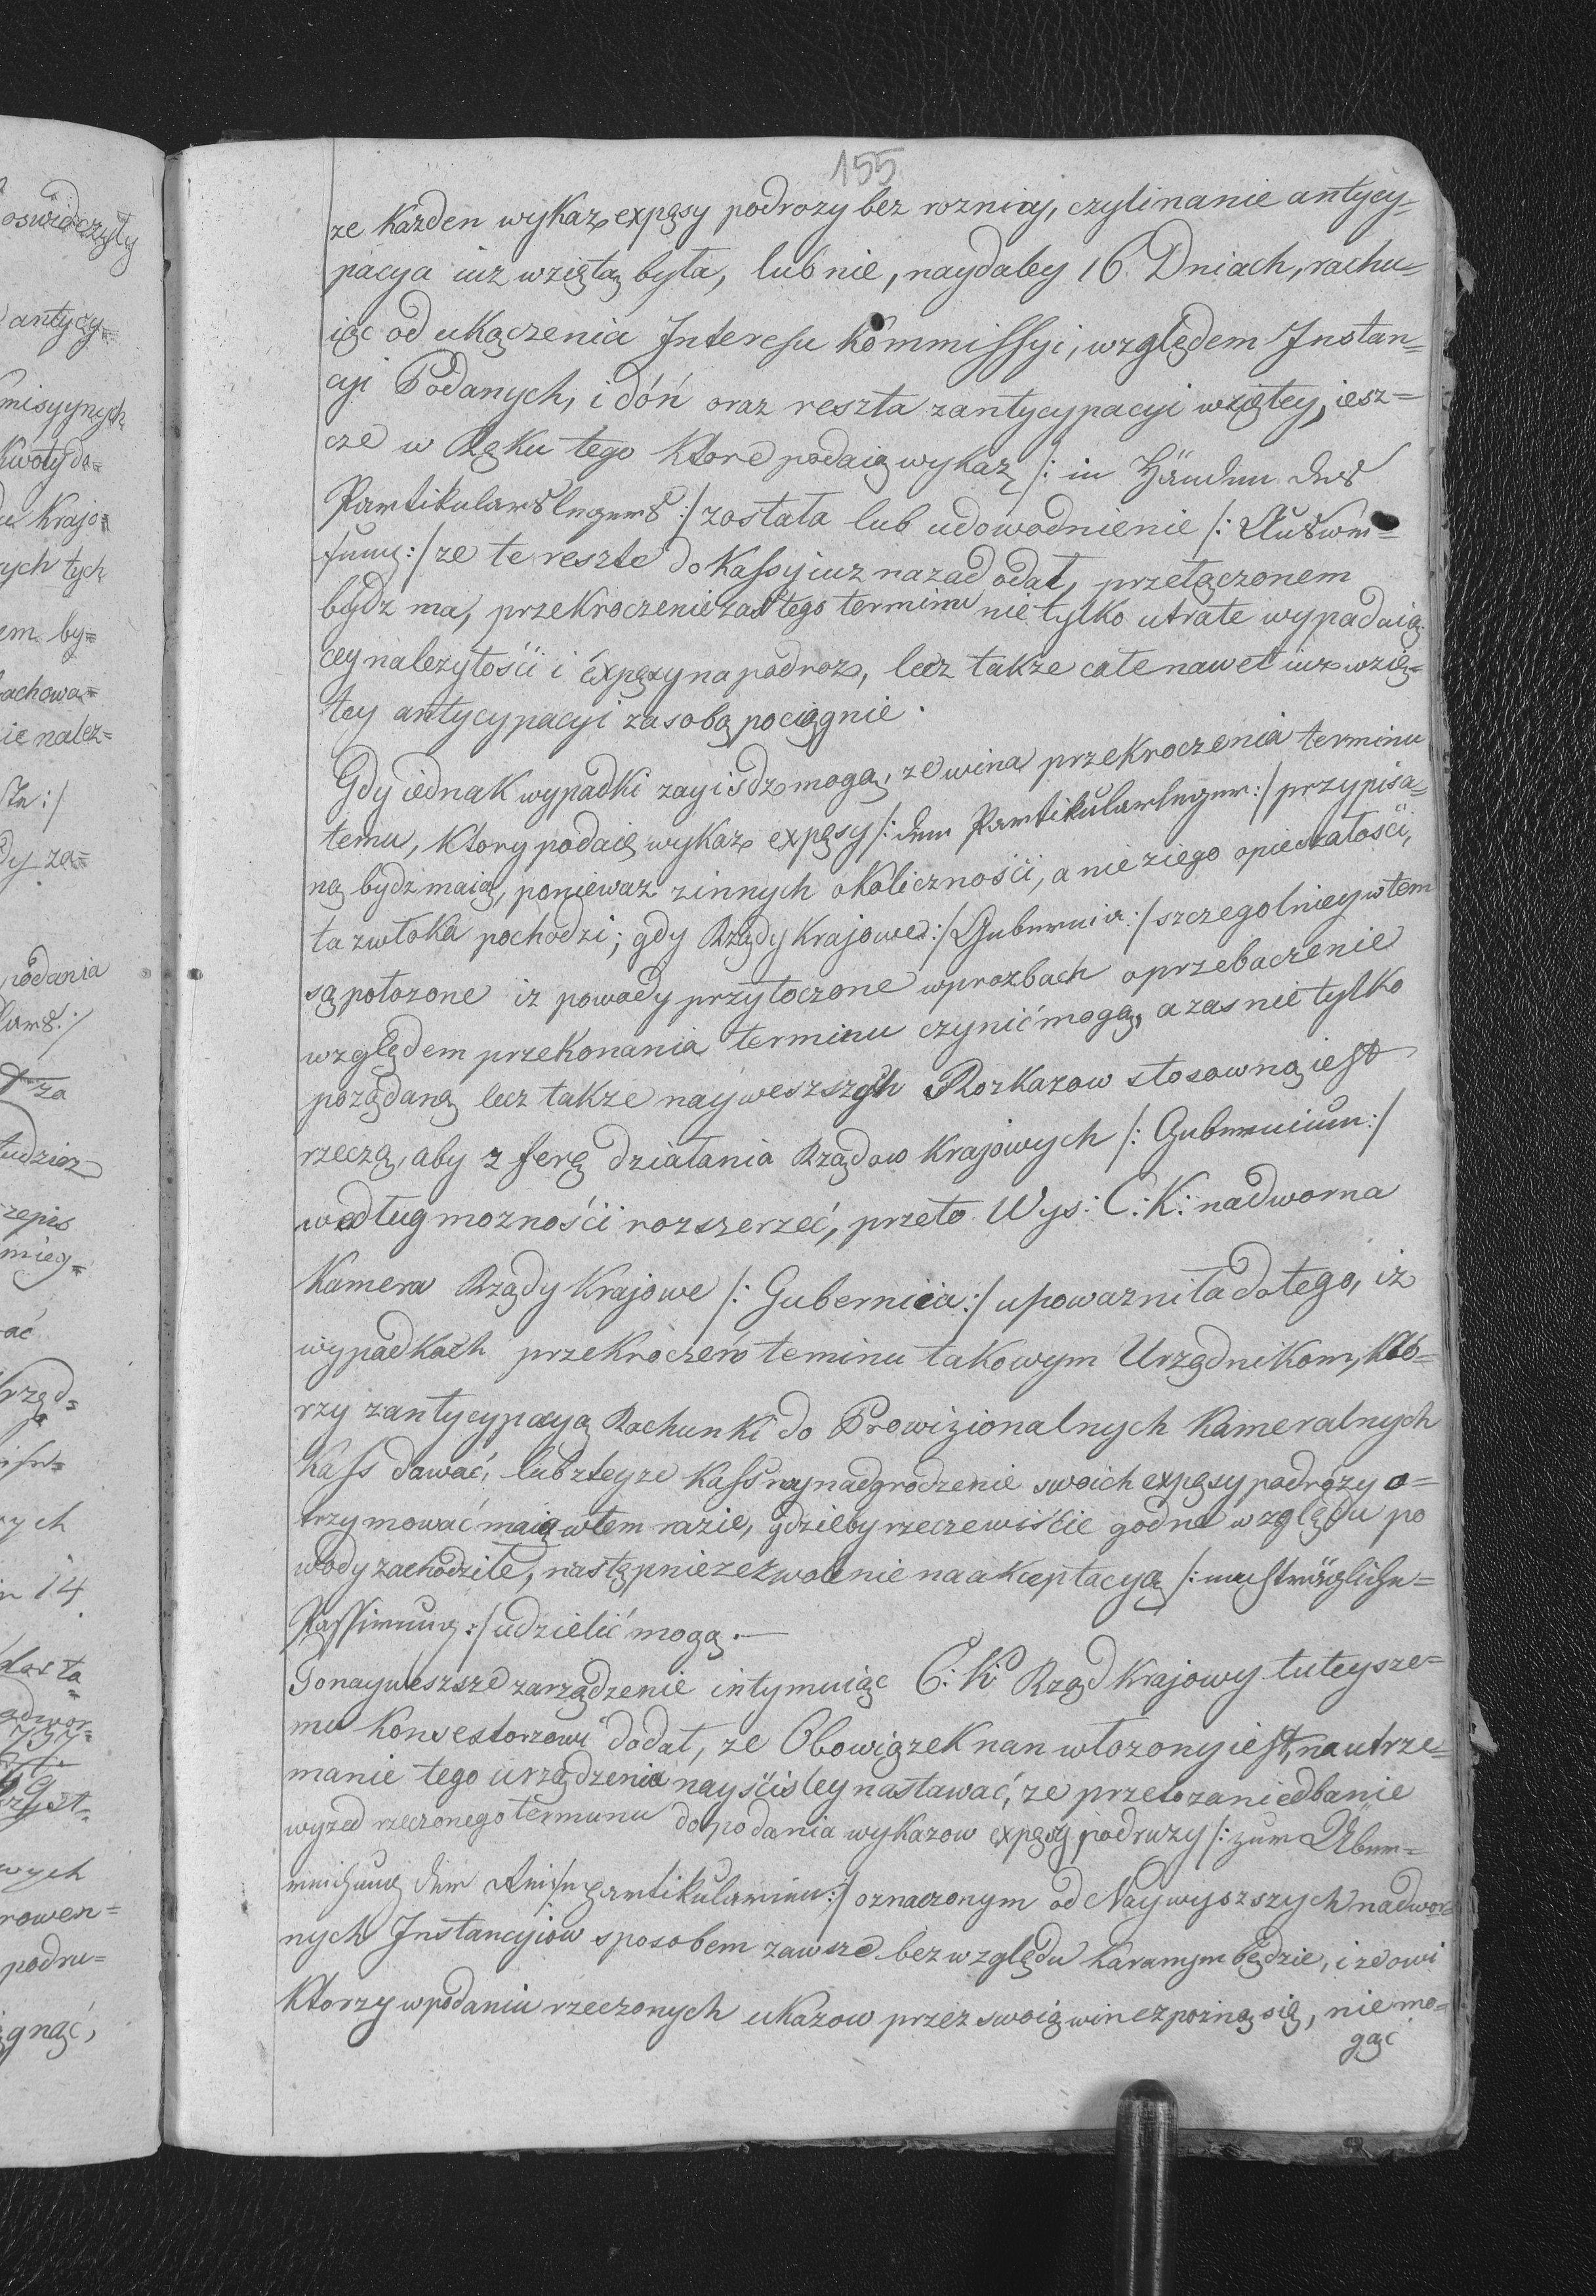 155
ze każden wykaz expęsy podrozy bez roznicy, czylinanie antycy=
pacya iuz wziętą była, lub nie, naydaley 16 Dniach, rachu=
iąc od ukączenia Interesu Kommissyi, względem Instan=
cyi Podanych, i dóń oraz reszta zantycypacyi wziętey, iesz=
cze w Ręku tego Ktore podaią wykaz /: in Händen des
Partikularslegers :/ została lub udowodnienie /: Auswei=
sung :/ ze te reszte do Kassy iuz nazad odał, przełączonem
bydz ma, przekroczenie zaś tego terminu nie tylko utrate wypadaią
cey nalezytośći i expęsy na podroz, lecz takze całe nawet iuz wzię=
tey antycypacyi za sobą pociągnie.
Gdy iednak wypadki zayisdz mogą, ze wina przekroczenia terminu
temu, Ktory podaie wykaz expęsy /: dem Partikularleger :/ przypisa=
ną bydz maią, poniewaz zinnych okolicznośći, a nie ziego opieszałośći,
ta zwłoka pochodzi; gdy Rządy Krajowe :/ Gubernia :/ szczegolniey w tem
są połozone iz powody przytoczone wprozbach o przebaczenie
względem przekonania terminu czynić mogą, a zas nie tylko
poządaną lecz takze naywesszych Rozkazow stosowną iest
rzeczą, aby z ferę działania Rządow Krajowych /: Gubernium :/
według moznośći rozszerzeć, przeto Wys: C: K: nadworna
Kamera Rządy Krajowe /: Gubernia :/ upowazniła do tego, iz
wypadkach przekroczeń teminu takowym Urzędnikom, Kto=
rzy zantycypacyą Rachunki do Prowizionalnych Kameralnych
Kass dawać, lub zteyze Kassy nadgrodzenie swoich expęsy podrózy o=
trzymować maią w tem razie, gdzieby rzeczewiśćie godne względu po
wody zachodziłe, następnie zezwolenie na akceptacyą /: nachträgliche=
Passirung :/ udzielić mogą.—
To naywesszszе zarządzenie intymuiąc C: K: Rząd Krajowy tuteysze=
mu Konsestorzowi dodał, ze Obowiązek nan włozony iest, na utrze=
manie tego urządzenia nayściśley nastawać, ze przeto zaniedbanie
wyzed rzeczonego termunu do podania wykazow expęsy podruzy /: zur Über=
reichung der Reisepartikularien :/ oznaczonym od Naywyzszych nadwor=
nych Instancyiow sposobem zawsze bez względu karanym będzie, i ze owi
Ktorzy wpodaniu rzeczonych ukazow przez swoią wine zpoznią się, nie mo=
gąc